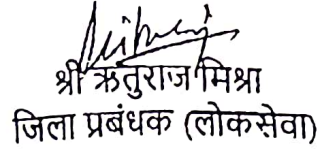 श्री ऋतुराज मिश्रा
जिला प्रबंधक (लोकसेवा)